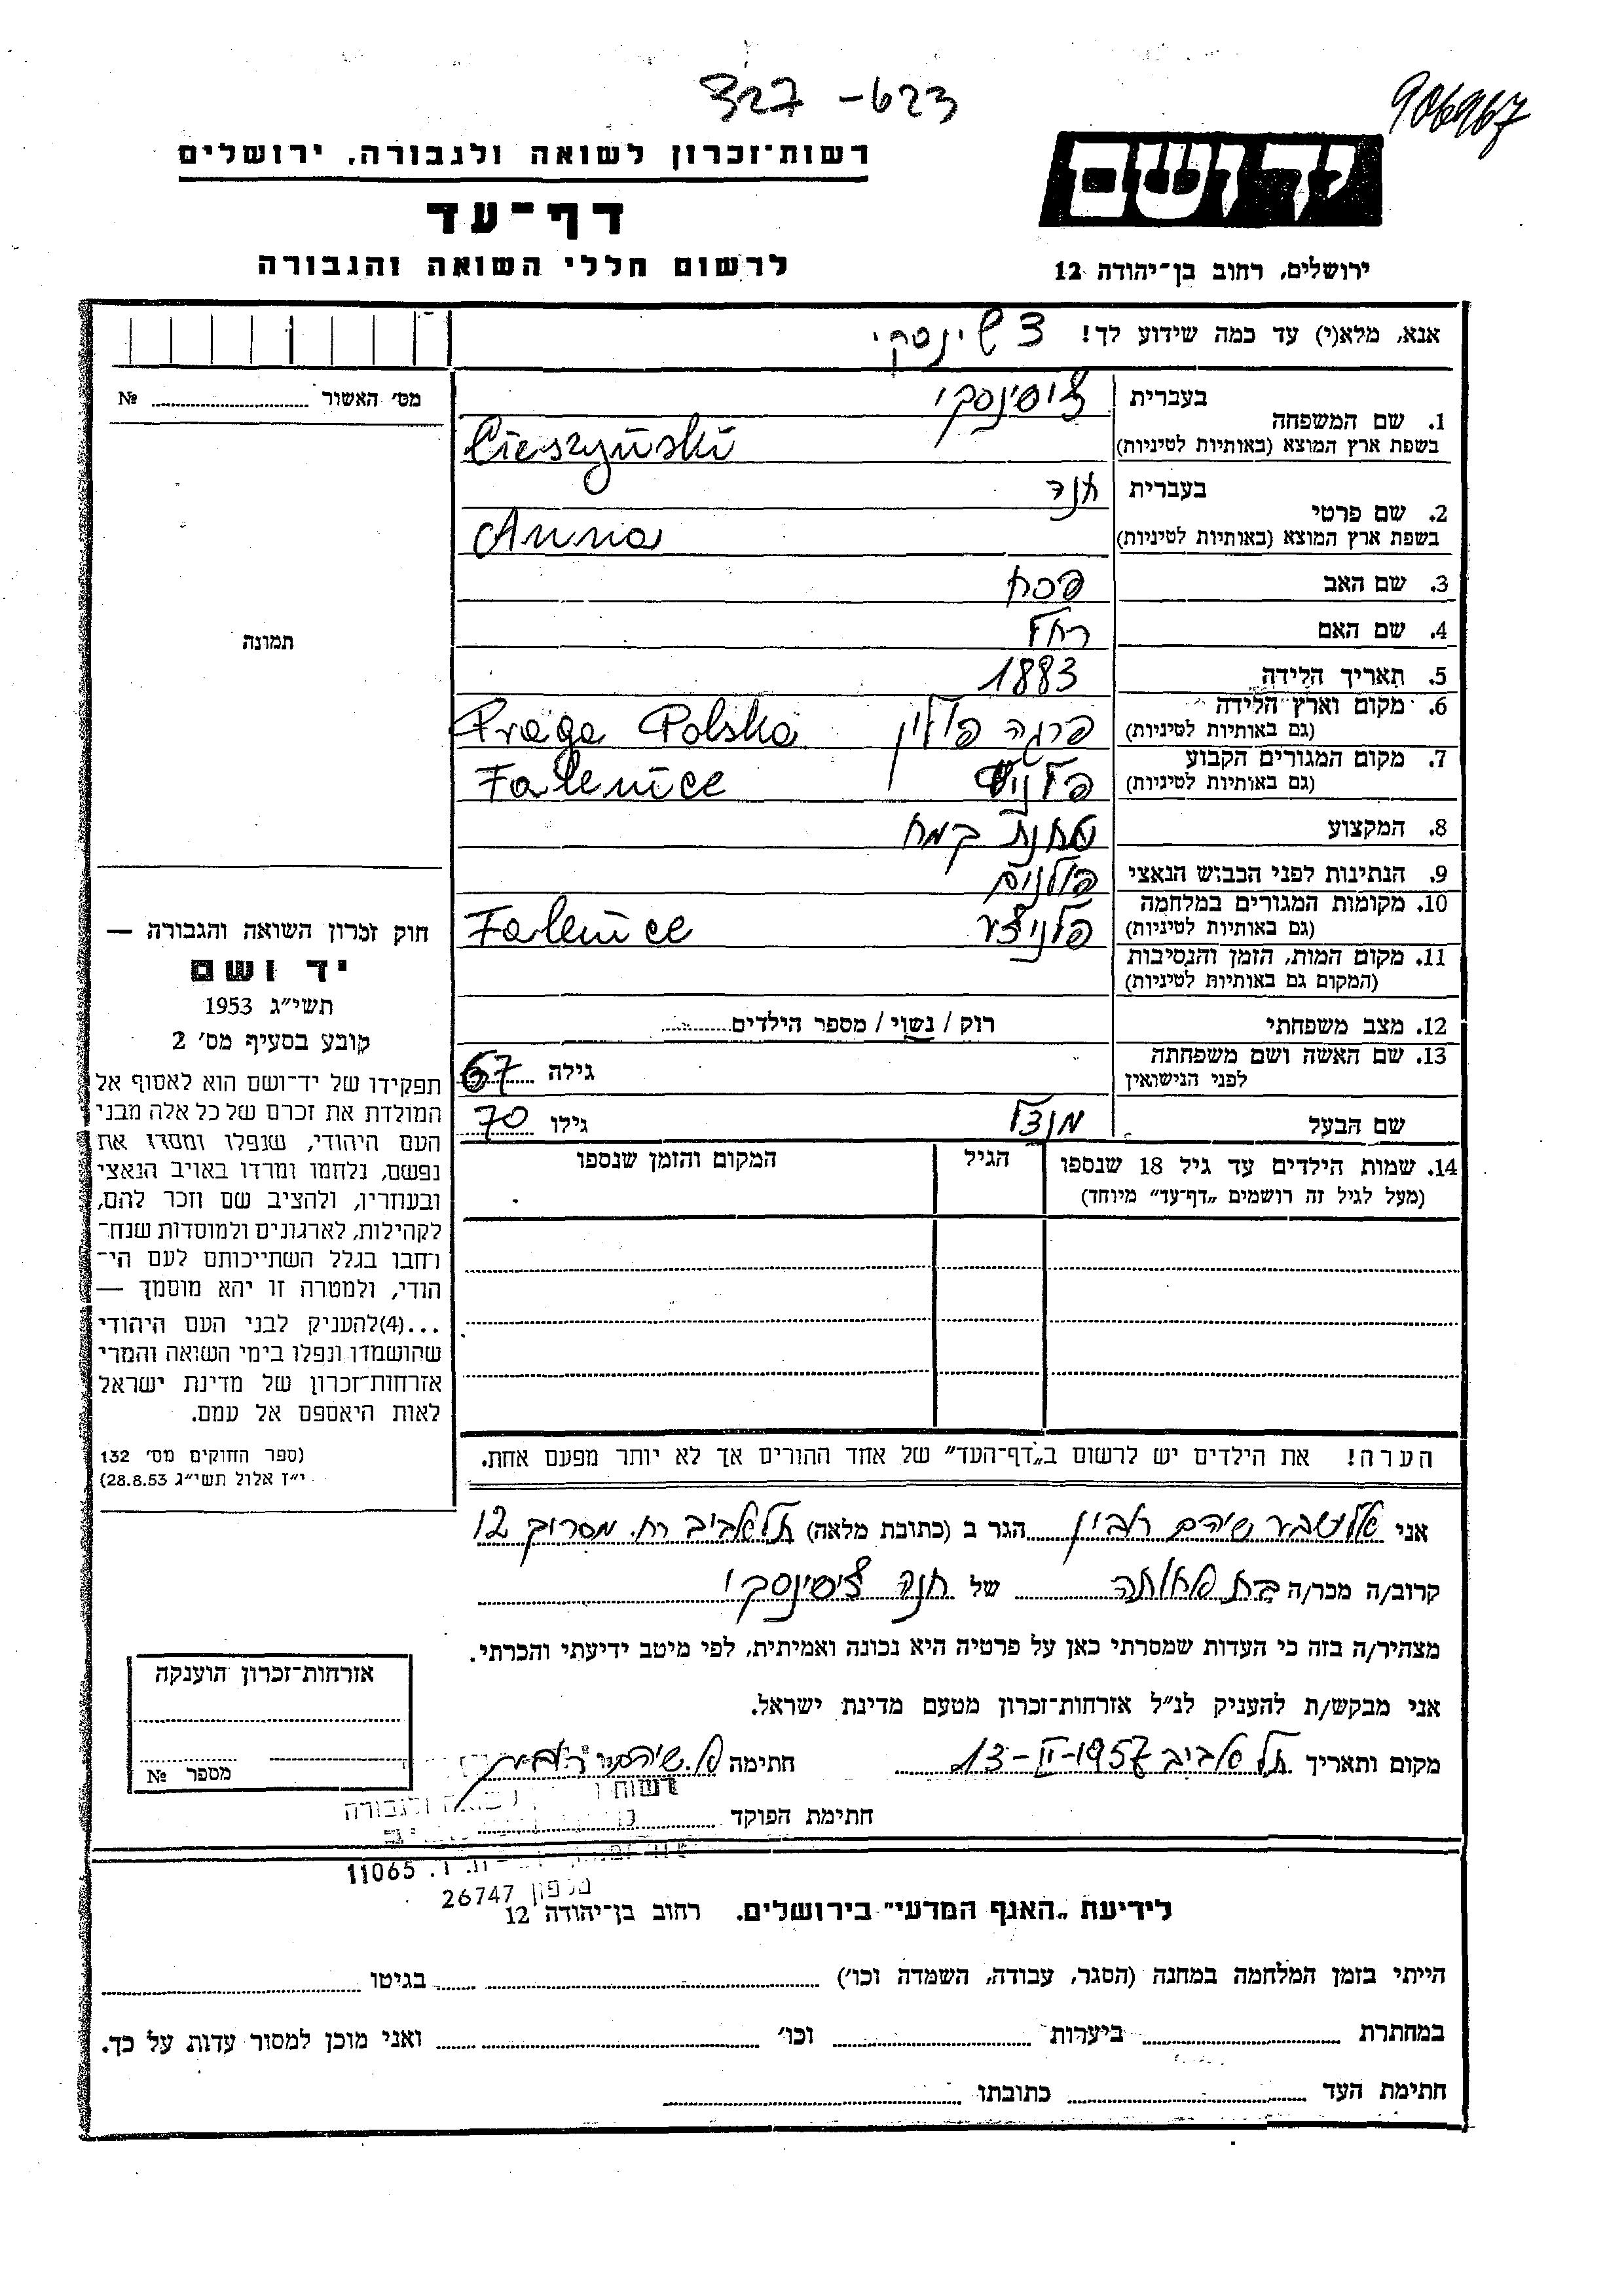 327-623
906967
רשות־זכרון לשואה ולגבורה, ירושלים
דף־עד
לרשום חללי השואה והגבורה
ידושם
ירושלים, רחוב בן־יהודה 12
אנא, מלא(י) עד כמה שידוע לך! צשינסקי
מס׳ האשור № ........
1. שם המשפחה
בעברית ציסינסקי
בשפת ארץ המוצא (באותיות לטיניות) Cieszyński
2. שם פרטי
בעברית חנה
בשפת ארץ המוצא (באותיות לטיניות) Anna
3. שם האב פסח
4. שם האם רחל
5. תאריך הלידה 1883
6. מקום וארץ הלידה
(גם באותיות לטיניות) פרגה פולין Praga Polska
7. מקום המגורים הקבוע
(גם באותיות לטיניות) Falenice
8. המקצוע טחנת קמח
9. הנתינות לפני הכבוש הנאצי
10. מקומות המגורים במלחמה
(גם באותיות לטיניות) פלניצה Falenice
11. מקום המות, הזמן והנסיבות
(המקום גם באותיות לטיניות)
12. מצב משפחתי רוק / נשוי / מספר הילדים........
13. שם האשה ושם משפחתה
לפני הנישואין גילה 67
שם הבעל מנדל גילו 70
14. שמות הילדים עד גיל 18 שנספו
(מעל לגיל זה רושמים „דף־עד” מיוחד)
הגיל
המקום והזמן שנספו
תמונה
חוק זכרון השואה והגבורה —
יד ושם
תשי״ג 1953
קובע בסעיף מס׳ 2
תפקידו של יד־ושם הוא לאסוף אל
המולדת את זכרם של כל אלה מבני
העם היהודי, שנפלו ומסרו את
נפשם, נלחמו ומרדו באויב הנאצי
ובעוזריו, ולהציב שם וזכר להם,
לקהילות, לארגונים ולמוסדות שנח־
רחבו בגלל השתייכותם לעם הי־
הודי, ולמטרה זו יהא מוסמך —
...(4) להעניק לבני העם היהודי
שהושמדו ונפלו בימי השואה והמרי
אזרחות־זכרון של מדינת ישראל
לאות היאספם אל עמם.
(ספר החוקים מס׳ 132
י״ז אלול תשי״ג 28.8.53)
הערה! את הילדים יש לרשום ב„דף־העד” של אחד ההורים אך לא יותר מפעם אחת.
אני הגר ב (כתובת מלאה) תל אביב רח. 12
קרוב/ה מכר/ה של חנה ציסינסקי
מצהיר/ה בזה כי העדות שמסרתי כאן על פרטיה היא נכונה ואמיתית, לפי מיטב ידיעתי והכרתי.
אני מבקש/ת להעניק לנ״ל אזרחות־זכרון מטעם מדינת ישראל.
מקום ותאריך תל אביב 13-II-1957 חתימה
חתימת הפוקד ........
אזרחות־זכרון הוענקה
מספר №
11065
טלפון 26747
לידיעת „האגף המדעי” בירושלים. רחוב בן־יהודה 12
הייתי בזמן המלחמה במחנה (הסגר, עבודה, השמדה וכו׳) ........ בגיטו ........
במחתרת ........ ביערות ........ וכו׳ ........ ואני מוכן למסור עדות על כך.
חתימת העד ........ כתובתו ........